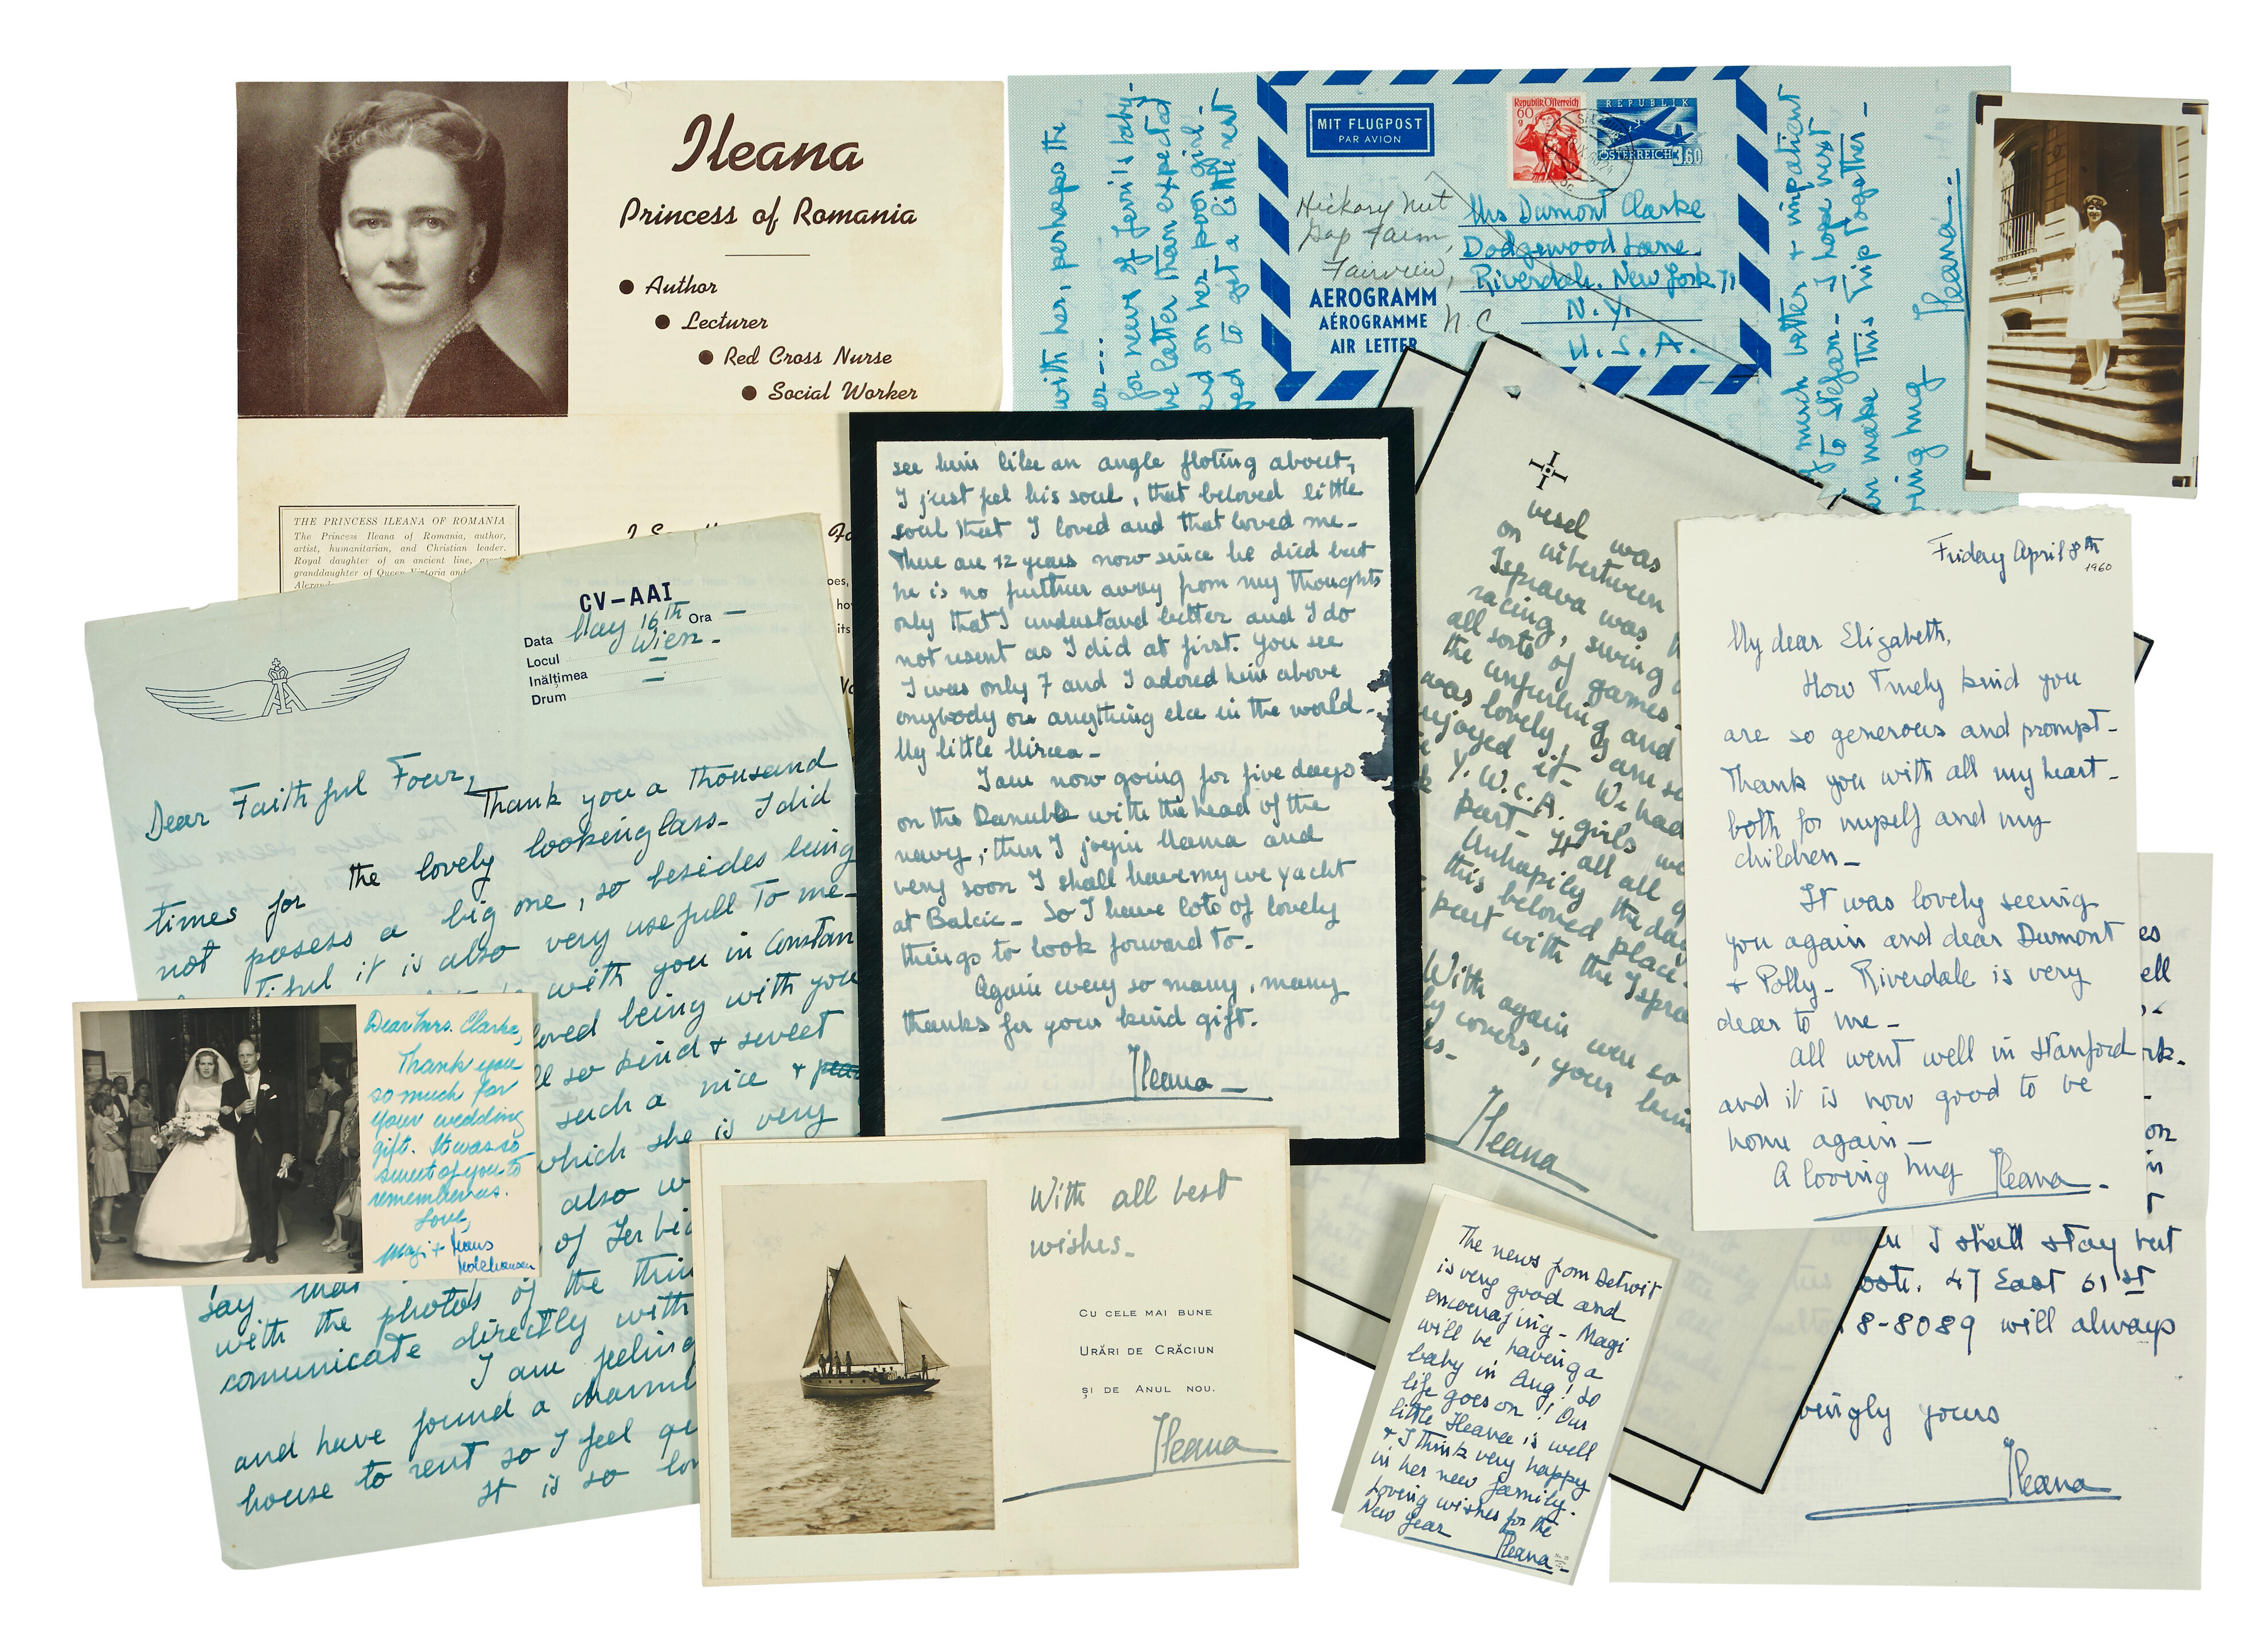 Ileana
Princess of Romania
Author
Lecturer
Red Cross Nurse
Social Worker
THE PRINCESS ILEANA OF ROMANIA
The Princess Ileana of Romania, author,
artist, humanitarian, and Christian leader.
Royal daughter of an ancient line,
granddaughter of Queen Victoria and
with her, perhaps the
for news of
latter than expected
on her poor girl-
to get a little rest
MIT FLUGPOST
PAR AVION
Republik Österreich
60
g
REPUBLIK
ÖSTERREICH 3.60
Hickory Nut
Gap Farm,
Fairview,
N.C.
Mrs Dumont Clarke
Dodgewood Lane.
Riverdale. New York 71
N.Y.
U.S.A.
AEROGRAMM
AÉROGRAMME
AIR LETTER
much better & impatient
to Stefan - I hope next
make this trip together -
hug
Ileana -
CV-AAI
Data May 16th Ora —
Locul Wien -
Inălțimea —
Drum —
Dear Faithful Four,
Thank you a thousand
times for the lovely lookinglass - I did
not posess a big one, so besides being
it is also very usefull to me -
with you in Constan
loved being with you
so kind & sweet
such a nice &
which she is very
also
of
say
with the photos of the
comunicate directly with
I am feeling
and have found a
house to rent so I feel
It is so
see him like an angle floting about,
I just feel his soul, that beloved little
soul that I loved and that loved me -
There are 12 years now since he died but
he is no further away from my thoughts
only that I understand better and I do
not resent as I did at first. You see
I was only 7 and I adored him above
anybody or anything else in the world -
My little Mircea -
I am now going for five days
on the Danube with the head of the
navy; then I joyin Mama and
very soon I shall have my we yacht
at Balcic - So I have lots of lovely
things to look forward to -
Again every so many, many
thanks for your kind gift.
Ileana -
vesel was
on
Isprava was
racing, swing
all sorts of games -
the unfurling and
was lovely, I am
enjoyed it - We had
Y.W.C.A. girls
part - It all all
Unhapily the day
this beloved place
part with the Ispra
With again
covers, your
Ileana
Friday April 8th
1960
My dear Elizabeth,
How truely kind you
are so generous and prompt -
Thank you with all my heart -
both for myself and my
children -
It was lovely seeing
you again and dear Dumont
& Polly - Riverdale is very
dear to me -
All went well in Stanford
and it is now good to be
home again -
A loving hug Ileana -
Dear Mrs. Clarke,
Thank you
so much for
your wedding
gift. It was so
sweet of you to
remember us.
Love,
Magi + Hans
Holzhausen
With all best
wishes -
CU CELE MAI BUNE
URĂRI DE CRĂCIUN
ȘI DE ANUL NOU.
Ileana
The news from Detroit
is very good and
encouraging - Magi
will be having a
baby in Aug! So
life goes on! Our
little Ileana is well
& I think very happy
in her new family.
Loving wishes for the
New Year
Ileana
I shall stay but
47 East 61 st
8-8089 will always
yours
Ileana